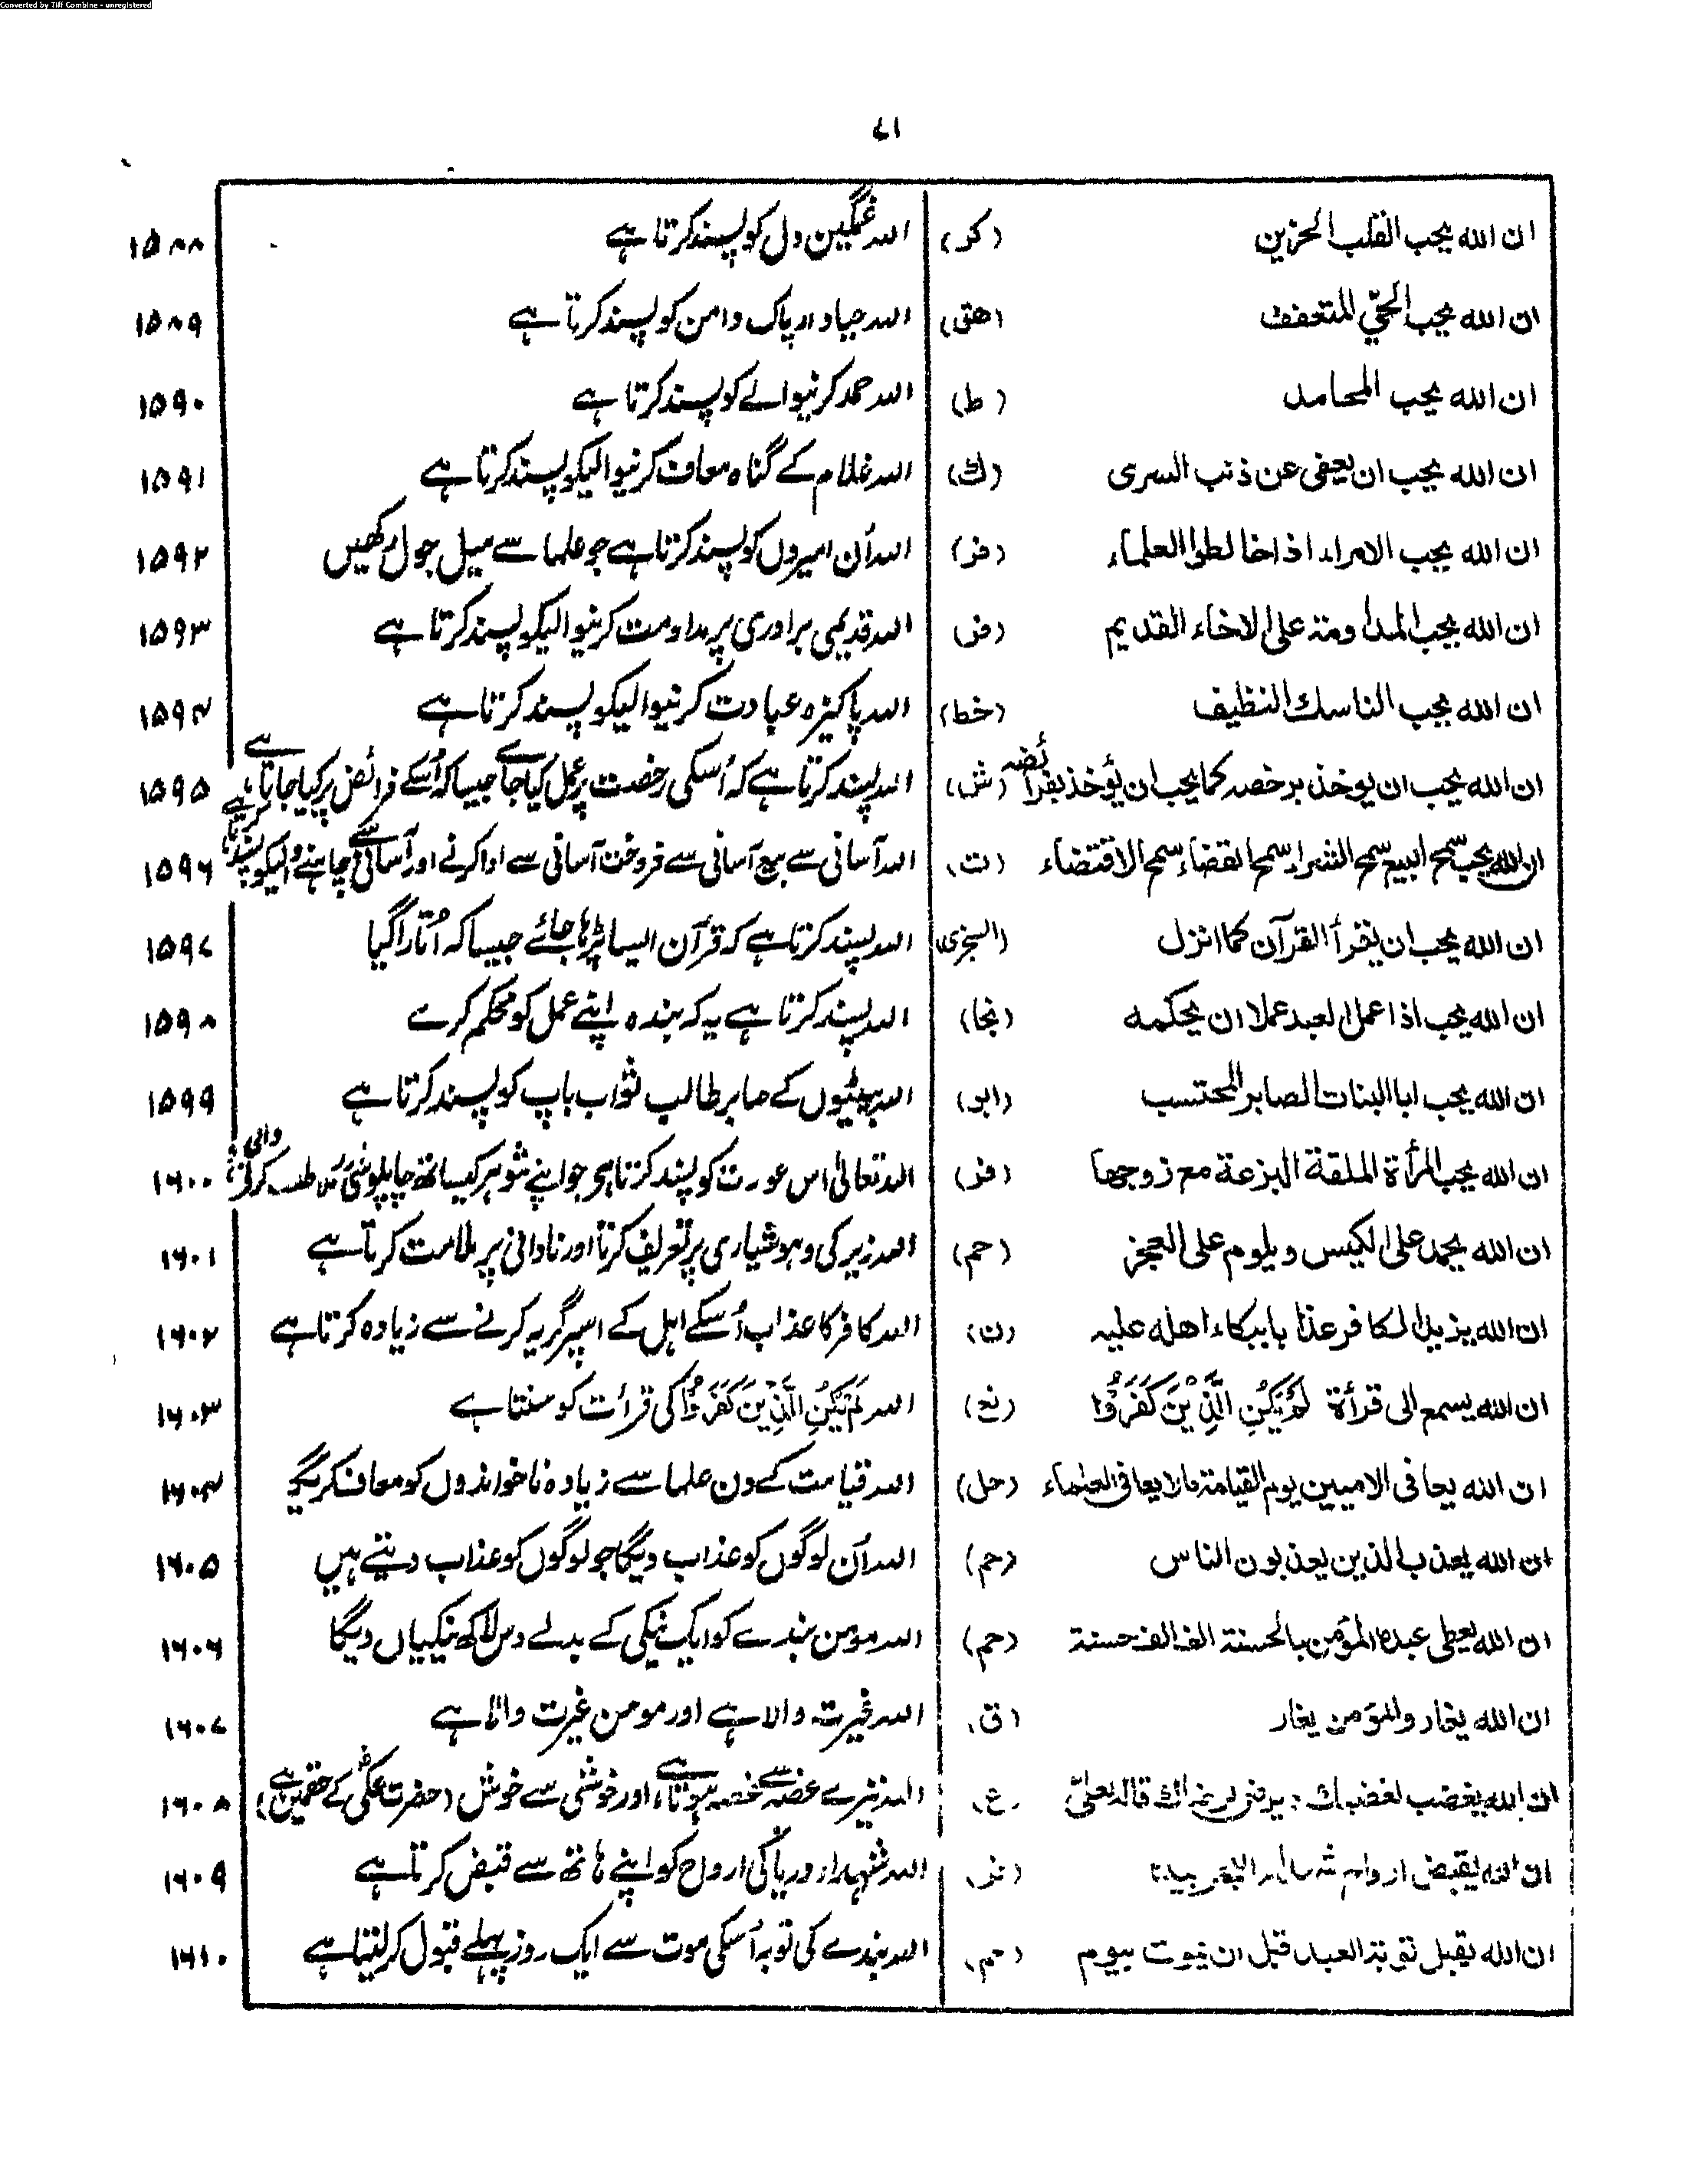 Converted by Tiff Combine - unregistered
۷۱
ان الله يحب القلب الحزين (كر) اللہ غمگین دل کو پسند کرتا ہے ۱۵۸۸
ان الله يحب الحيّ المتعفف (هق) اللہ حیادار پاک دامن کو پسند کرتا ہے ۱۵۸۹
ان الله يحب المحامد (ط) اللہ حمد کرنیوالے کو پسند کرتا ہے ۱۵۹۰
ان الله يحب ان يعفى عن ذنب السرى (ك) اللہ غلام کے گناہ معاف کرنیوالیکو پسند کرتا ہے ۱۵۹۱
ان الله يحب الامراء اذا خالطوا العلماء (فر) اللہ اُن امیروں کو پسند کرتا ہے جو علما سے میل جول رکھیں ۱۵۹۲
ان الله يحب المداومة على الاخاء القديم (فر) اللہ قدیمی برادری پر مداومت کرنیوالیکو پسند کرتا ہے ۱۵۹۳
ان الله يحب الناسك النظيف (خط) اللہ پاکیزہ عبادت کرنیوالیکو پسند کرتا ہے ۱۵۹۴
ان الله يحب ان يوخذ برخصه كما يحب ان يؤخذ بفرائضه (ش) اللہ پسند کرتا ہے کہ اُسکی رخصت پر عمل کیا جاے جیسا کہ اُسکے فرائض پر کیا جاتا ہے ۱۵۹۵
ان الله يحب سمح البيع سمح الشراء سمح القضاء سمح الاقتضاء (ت) اللہ آسانی سے بیع آسانی سے فروخت آسانی سے ادا کرنے اور آسانی سے چاہنے والیکو پسند کرتا ہے ۱۵۹۶
ان الله يحب ان يقرأ القرآن كما انزل (السجزى) اللہ پسند کرتا ہے کہ قرآن ایسا پڑہا جائے جیسا کہ اُتارا گیا ۱۵۹۷
ان الله يحب اذا عمل العبد عملا ان يحكمه (نجا) اللہ پسند کرتا ہے یہ کہ بندہ اپنے عمل کو محکم کرے ۱۵۹۸
ان الله يحب ابا البنات الصابر المحتسب (ابو) اللہ بیٹیوں کے صابر طالب ثواب باپ کو پسند کرتا ہے ۱۵۹۹
ان الله يحب المرأة الملقة البزعة مع زوجها (فر) اللہ تعالیٰ اس عورت کو پسند کرتا ہی جو اپنے شوہر کیساتھ چاپلوسی ۱۶۰۰
ان الله يحمد على الكيس ويلوم على العجز (حم) اللہ زیرکی و ہوشیاری پر تعریف کرتا اور نادانی پر ملامت کرتا ہے ۱۶۰۱
ان الله يزيد الكافر عذابا ببكاء اهله عليه (ن) اللہ کافر کا عذاب اُسکے اہل کے اسپر گریہ کرنے سے زیادہ کرتا ہے ۱۶۰۲
ان الله يسمع الى قرأة لَمْ يَكُنِ الَّذِيْنَ كَفَرُوْا (نع) اللہ لَمْ يَكُنِ الَّذِيْنَ كَفَرُوْا کی قرأت کو سنتا ہے ۱۶۰۳
ان الله يعافى الاميين يوم القيامة مالا يعافى العلماء (حل) اللہ قیامت کے دن علما سے زیادہ ناخواندوں کو معاف کریگا ۱۶۰۴
ان الله يعذب الذين يعذبون الناس (حم) اللہ اُن لوگوں کو عذاب دیگا جو لوگوں کو عذاب دیتے ہیں ۱۶۰۵
ان الله يعطى عبده المؤمن بالحسنة الف الف حسنة (حم) اللہ مومن بندے کو ایک نیکی کے بدلے دس لاکھ نیکیاں دیگا ۱۶۰۶
ان الله يغار والمؤمن يغار (ق) اللہ غیرت والا ہے اور مومن غیرت والا ہے ۱۶۰۷
ان الله يغضب لغضبك ويرضى لرضاك قاله لعلىّ (ع) اللہ تیرے غصہ سے غصہ ہوتا ہے اور خوشی سے خوش (حضرت علی کے حقمیں ہے) ۱۶۰۸
ان الله يقبض ارواح البحر بيده اللہ شہداء دریا کی ارواح کو اپنے ہاتھ سے قبض کرتا ہے ۱۶۰۹
ان الله يقبل توبة العبد قبل ان يموت بيوم (حم) اللہ بندے کی توبہ اُسکی موت سے ایک روز پہلے قبول کر لیتا ہے ۱۶۱۰